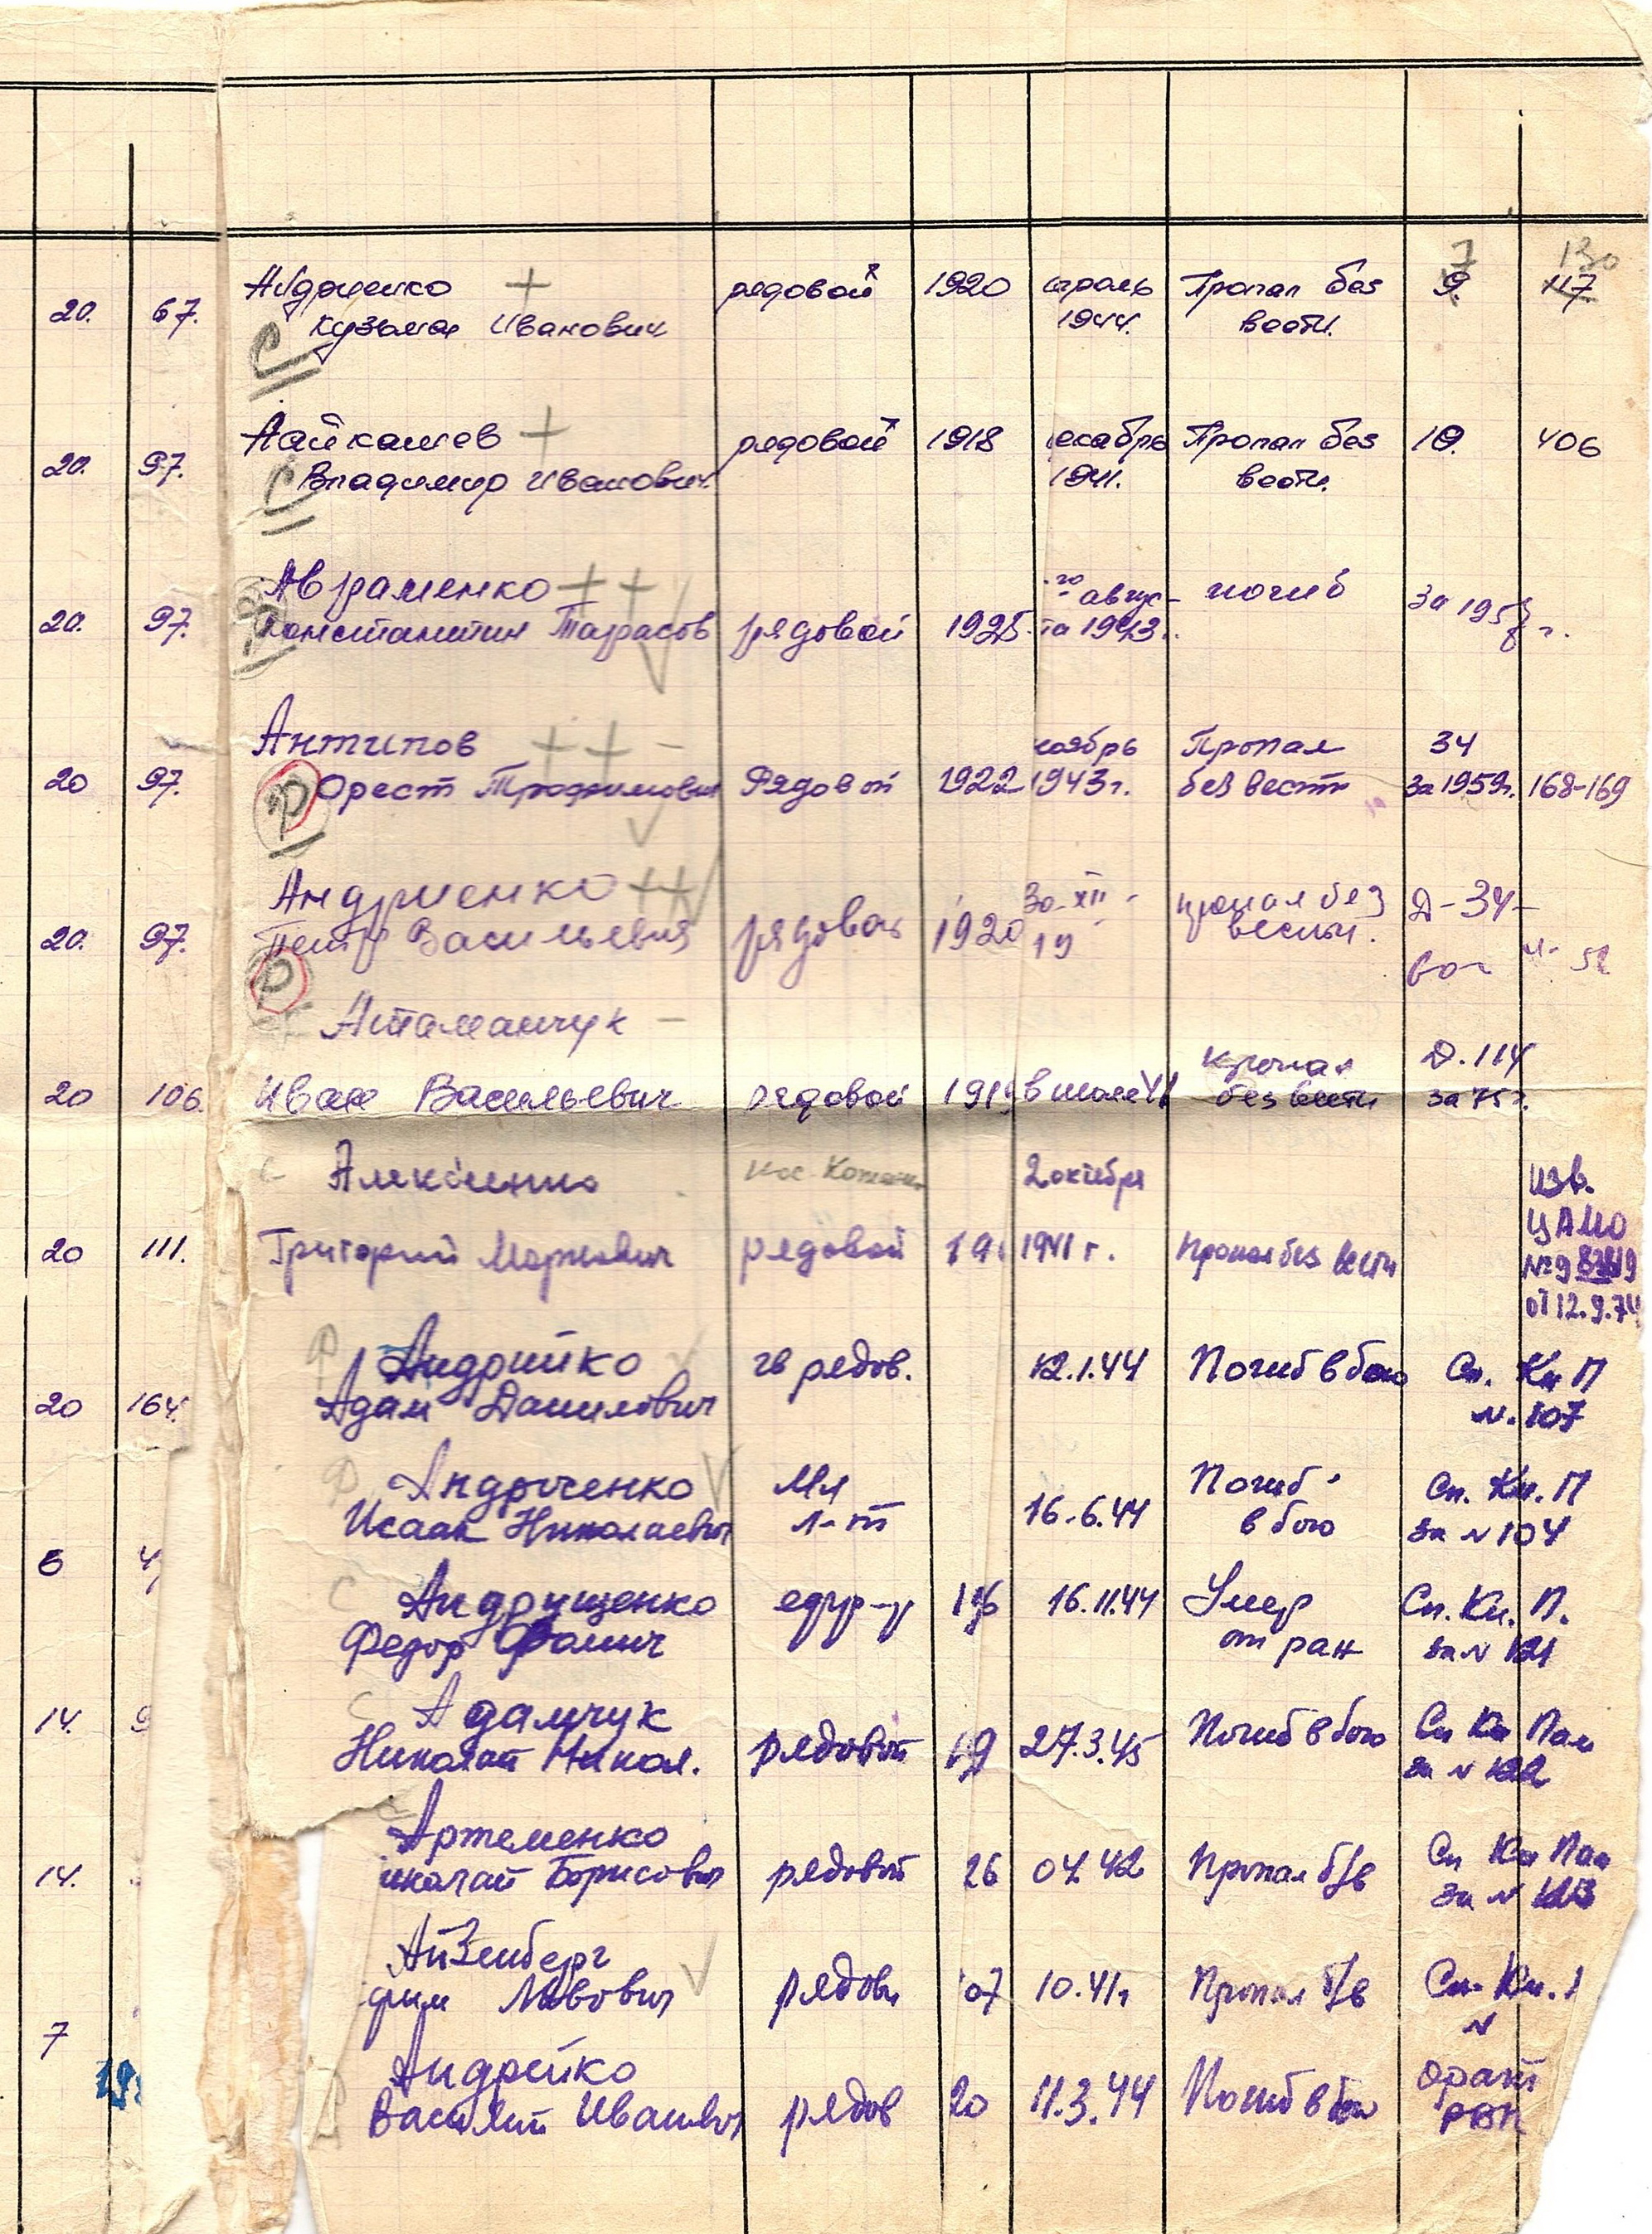 7 130
Андриенко + рядовой 1920 Пропал без 9. 117
20. 67. Кузьма Иванович 1944. вести.
С
Айкашев + рядовой 1918 декабрь Пропал без 19. 406
20. 97. С Владимир Иванович 1941. вести.
Авраменко ++ август погиб За 1958 г.
20. 97. Константин Тарасов рядовой 1925 та 1943 г.
Антипов ++ - ноябрь Пропал 34
20 97. Орест Трофимович Рядовой 1922 1943 г. без вести за 1959 г. 168-169
Р
Андриенко ++ 30-XII - пропал без Д-34-
20. 97. Петр Васильевич рядовой 1920 19 вести.
Р
Атаманчук - пропал Д. 114
20 106. Иван Васильевич рядовой 1919 в июле 41 без вести за 75 г.
С Алексиенко 2 октября изв.
ЦАМО
20 111. Григорий Маркович рядовой 19 1941 г. Пропал без вести №9
от 12.9.74
Р Андрийко гв рядов. 12.1.44 Погиб в бою Сп. Кн П
20 164. Адам Данилович N. 107
Р Андрюченко Мл Погиб Сп. Кн. П
Исаак Николаевич л-т 16.6.44 в бою за N 104
6 4
С Андрущенко 16.11.44 Умер Сп. Кн. П.
Федор Фомич от ран за N 121
С Адамчук Погиб в бою Сп Кн Пам
14. 9 Николай Никол. рядовой 19 27.3.45 за N 122
С Артеменко Сп Кн Пам
14. иколай Борисович рядовой 26 04. 42 Пропал б/в за N 123
Айзенберг
фим Львович рядов 07 10.41 г Пропал б/в Сп. Кн.
7 N
19
Андрейко
Василий Иванович рядов 20 11.3.44 Погиб в бою РВК